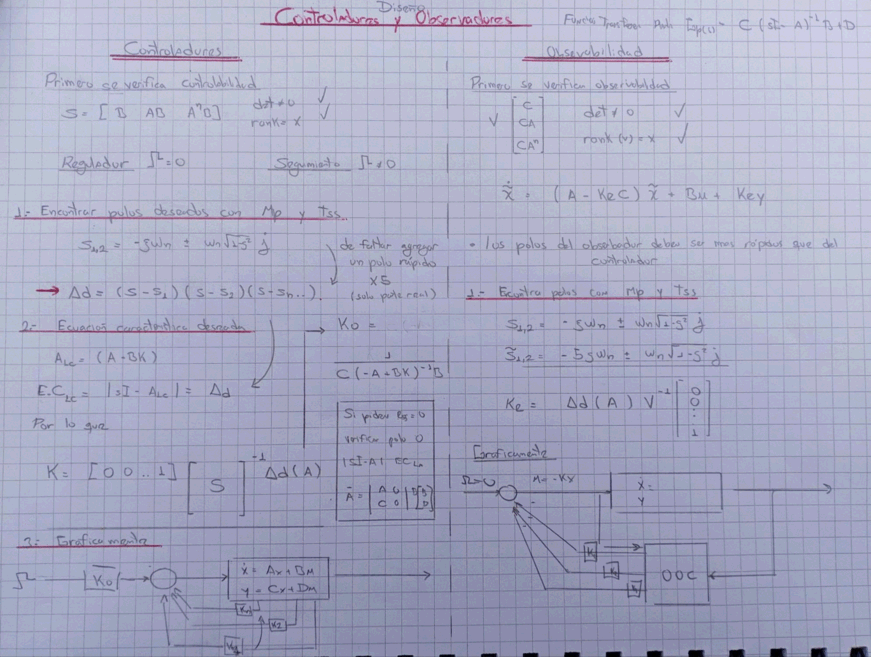 Diseño
Controladores y Observadores
Función Transferen. Planta = C (sI - A)⁻¹ B + D
Controladores
Primero se verifica controlabilidad
S = [ B AB AⁿB ] det ≠ 0 ✓
rank = x ✓
Regulador Ω = 0 Seguimiento Ω ≠ 0
1.- Encontrar polos deseados con Mp y Tss.
S₁,₂ = -ζωn ± ωn√1-ζ² j
de faltar agregar
un polo rápido
x5
(solo parte real)
→ Δd = (s - s₁) (s - s₂) (s - sn...)
2.- Ecuación característica deseada
A_LC = (A - BK)
E.C_LC = |sI - A_LC| = Δd
Por lo que
K = [0 0 .. 1] [S]⁻¹ Δd(A)
→ Ko =
1
C (-A + BK)⁻¹B
Si piden = 0
verificar polo 0
|SI - A| EC
Ā = | A 0 | [B]
C 0 0
3.- Graficamente
Ω Ko ẋ = Ax + Bu
y = Cx + Du
K1
K2
Observabilidad
Primero se verifica observabilidad
V [ C
CA
CAⁿ ]
det ≠ 0 ✓
rank (v) = x ✓
x̃̇ = (A - KeC) x̃ + Bu + Key
• los polos del observador deben ser mas rápidos que del
controlador
1.- Encontra polos con Mp y Tss
S₁,₂ = -ζωn ± ωn√1-ζ² j
S̃₁,₂ = -5ζωn ± ωn√1-ζ² j
Ke = Δd(A) V⁻¹ [ 0
0
⋮
1 ]
Graficamente
Ω=0 u = -Kx ẋ =
y
K
K
K
OOC